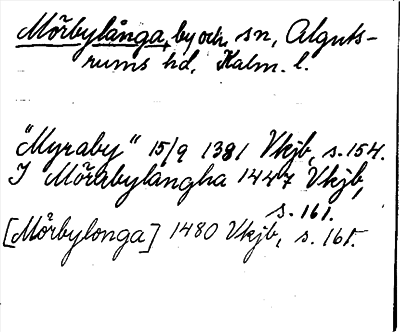 Mörbylånga, by och sn, Alguts-
rums hd, Kalm. l.
"Myraby" 15/9 1381 Vkjb, s. 154.
I Mörabylangha 1447 Vkjb,
s. 161.
[Mörbylonga] 1480 Vkjb, s. 161.